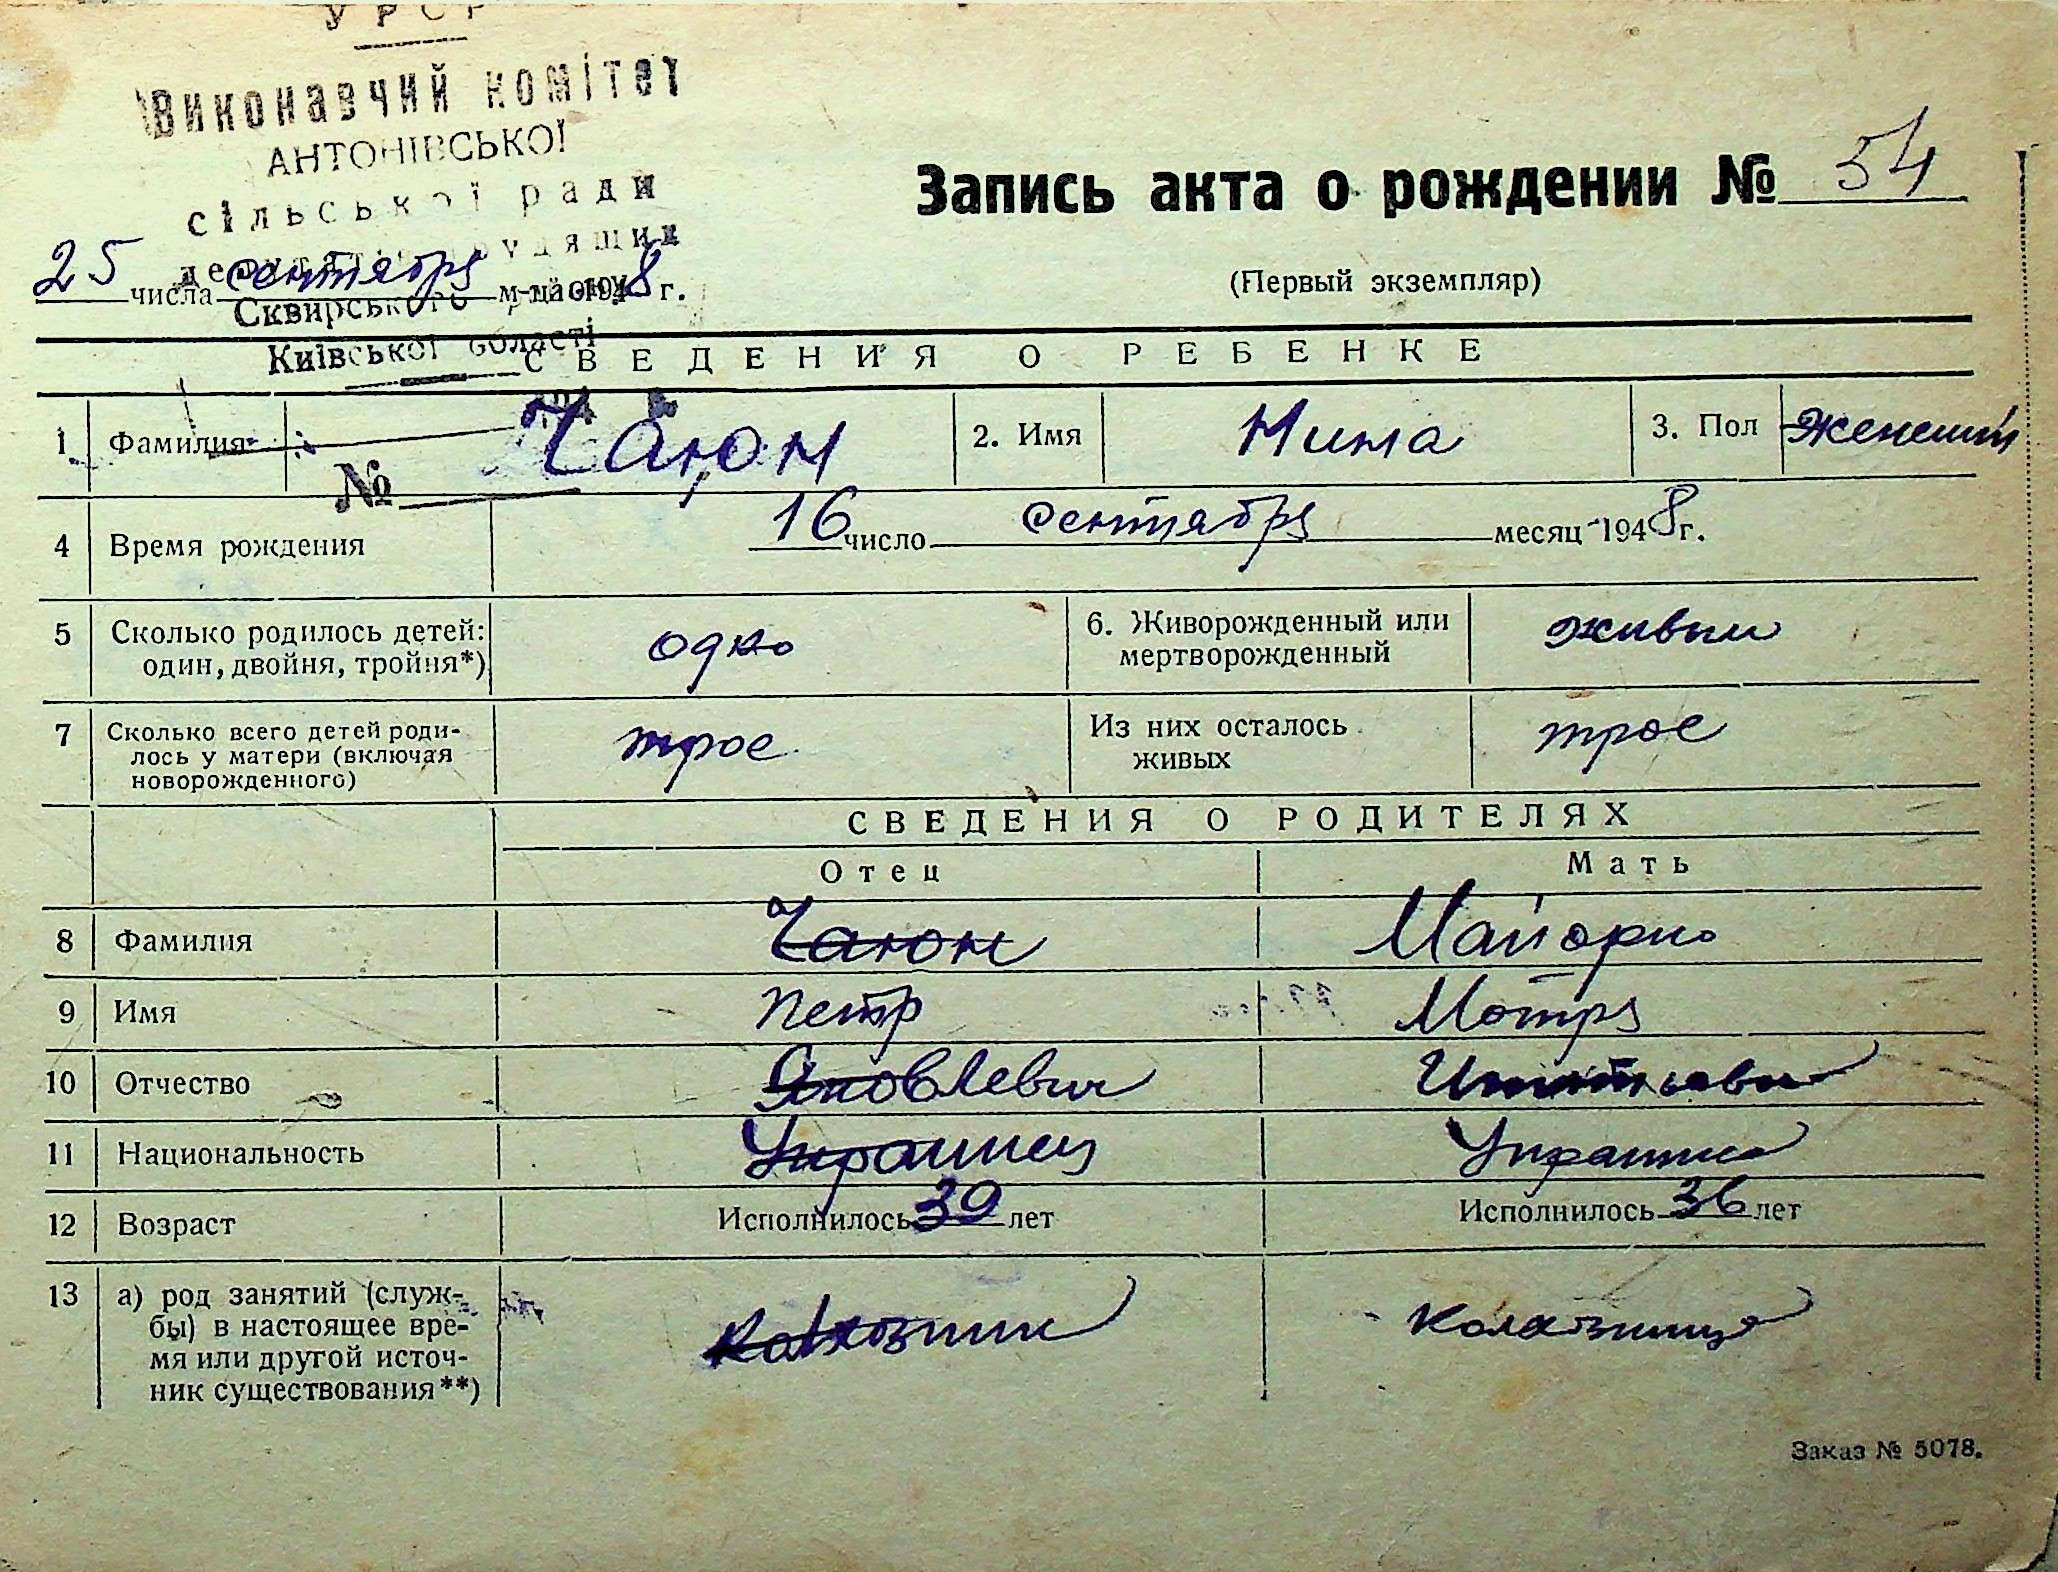 УРСР
Виконавчий комітет
АНТОНІВСЬКОЇ
сільської ради
депутатів трудящих
Сквирського району
Київської області
№
Запись акта о рождении № 54
(Первый экземпляр)
25 числа сентября м-ца 1948 г.
СВЕДЕНИЯ О РЕБЕНКЕ
1 Фамилия Чаюн 2. Имя Нина 3. Пол Женский
4 Время рождения 16 число сентября месяц 1948 г.
5 Сколько родилось детей: один, двойня, тройня*) одно 6. Живорожденный или мертворожденный живым
7 Сколько всего детей родилось у матери (включая новорожденного) трое Из них осталось живых трое
СВЕДЕНИЯ О РОДИТЕЛЯХ
Отец Мать
8 Фамилия Чаюн
9 Имя Петр Мотря
10 Отчество Яковлевич
11 Национальность Украинец Украинка
12 Возраст Исполнилось 39 лет Исполнилось 36 лет
13 а) род занятий (служ-
бы) в настоящее вре-
мя или другой источ-
ник существования**) Колхозник Колхозница
Заказ № 5078.